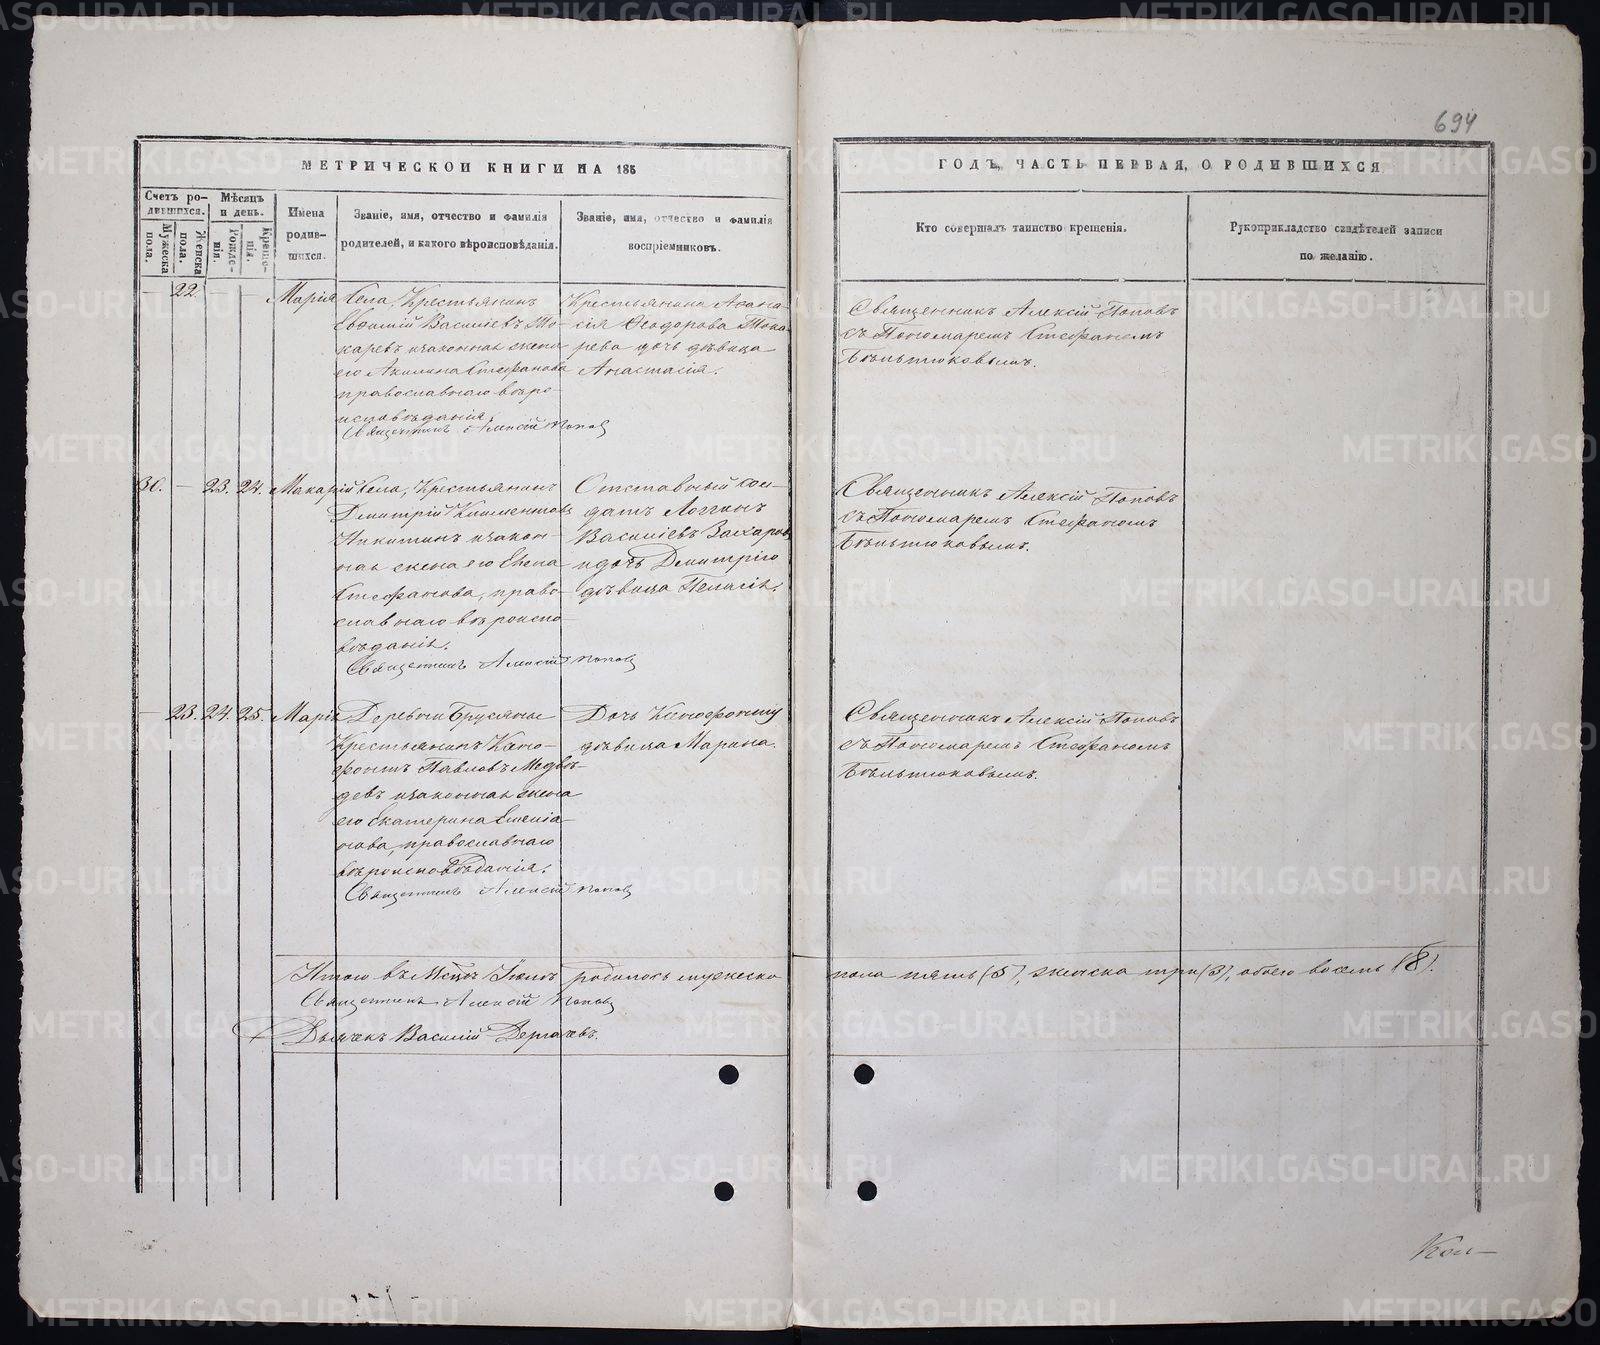 694
МЕТРИЧЕСКОЙ КНИГИ НА 185
ГОДЪ, ЧАСТЬ ПЕРВАЯ, О РОДИВШИХСЯ
Счетъ ро-
дившихся.
Мужеска
пола.
Женска
пола.
Мѣсяцъ
и день.
Рожде-
нія.
Креще-
нія.
Имена
родив-
шихся.
Званіе, имя, отчество и фамилія
родителей, и какого вѣроисповѣданія.
Званіе, имя, отчество и фамилія
воспріемниковъ.
Кто совершалъ таинство крещенія.
Рукоприкладство свидѣтелей записи
по желанію.
— 22. — — Марія
Села, Крестьянинъ
Евфимій Васильевъ То-
каревъ и законная жена
его Акилина Стефанова
православнаго вѣро-
исповѣданія.
Священникъ Алексій Поповъ
Крестьянина Афана-
сія Ѳеодорова Тока-
рева дочь дѣвица
Анастасія.
Священникъ Алексій Поповъ
съ Пономаремъ Стефаномъ
30. — 23. 24. Макарій
Села, Крестьянинъ
Дмитрій Климентовъ
Никитинъ и закон-
ная жена его Елена
Стефанова, право-
славнаго вѣроиспо-
вѣданія.
Священникъ Алексій Поповъ
Отставный сол-
датъ Логгинъ
Васильевъ Захаровъ
и дочь Дмитрія
дѣвица Пелагія.
Священникъ Алексій Поповъ
съ Пономаремъ Стефаномъ
— 23. 24. 25. Марія
Деревни Брусяны
Крестьянинъ Ксено-
фонтъ Павловъ Медвѣ-
девъ и законная жена
его Екатерина Емелія-
нова, православнаго
вѣроисповѣданія.
Священникъ Алексій Поповъ
Дочь Ксенофонту
дѣвица Марина.
Священникъ Алексій Поповъ
съ Пономаремъ Стефаномъ
Итого въ Мсцѣ Іюлѣ родилось мужеска
пола пять (5), женска три (3), обоего восемь (8).
Священникъ Алексій Поповъ
Дьячекъ Василій Дергачевъ.
METRIKI.GASO-URAL.RU